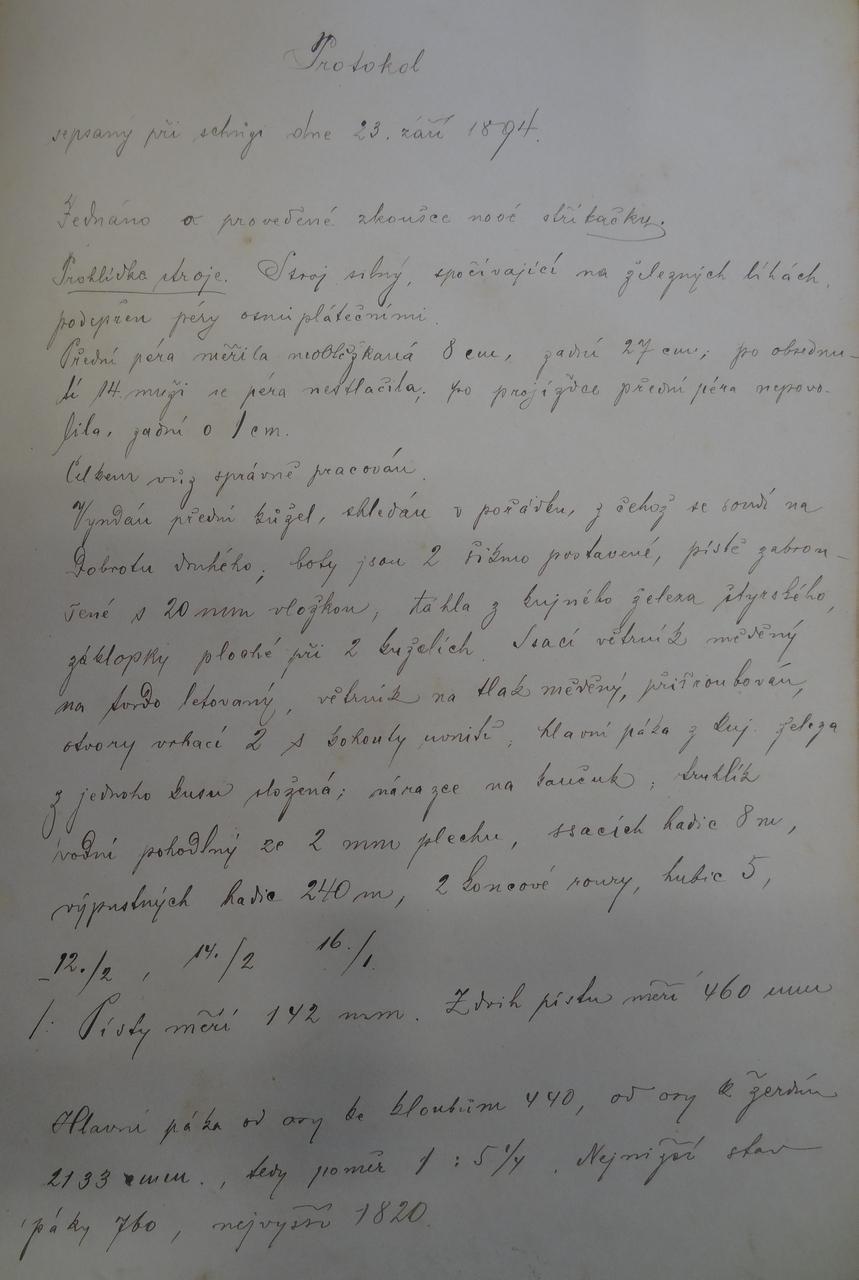 Protokol
sepsaný při schůzi dne 23. září 1894.
Jednáno o provedené zkoušce nové stříkačky.
Prohlídka stroje. Stroj silný, spočívající na železných líhách,
podepřen péry osmiplátečními.
Přední péra měřila neobtěžkaná 8 cm, zadní 27 cm; po obsednu-
tí 14 muži se péra nestlačila; po projížďce přední péra nepovo-
lila, zadní o 1 cm.
Celkem vůz správně pracován.
Vyndán přední kužel, shledán v pořádku, z čehož se soudí na
dobrotu druhého; boty jsou 2 šikmo postavené, pístě zabrou-
šené s 20 mm vložkou, táhla z kujného železa štyrského,
záklopky ploché při 2 kuželích. Ssací větrník měděný
na tvrdo letovaný, větrník na tlak měděný, přišroubován,
otvory vrhací 2 s kohouty uvnitř, hlavní páka z kuj. železa
z jednoho kusu složená; nárazce na kaučuk; truhlík
vodní pohodlný ze 2 mm plechu, ssacích hadic 8 m,
výpustných hadic 240 m, 2 koncové roury, hubic 5,
12./2, 14./2 16./1.
/: Písty měří 142 mm. Zdvih pístu měří 460 mm
Hlavní páka od osy ke kloubům 440, od osy k žerdím
2133 mm., tedy poměr 1 : 5 1/4. Nejnižší stav
páky 760, nejvyšší 1820.